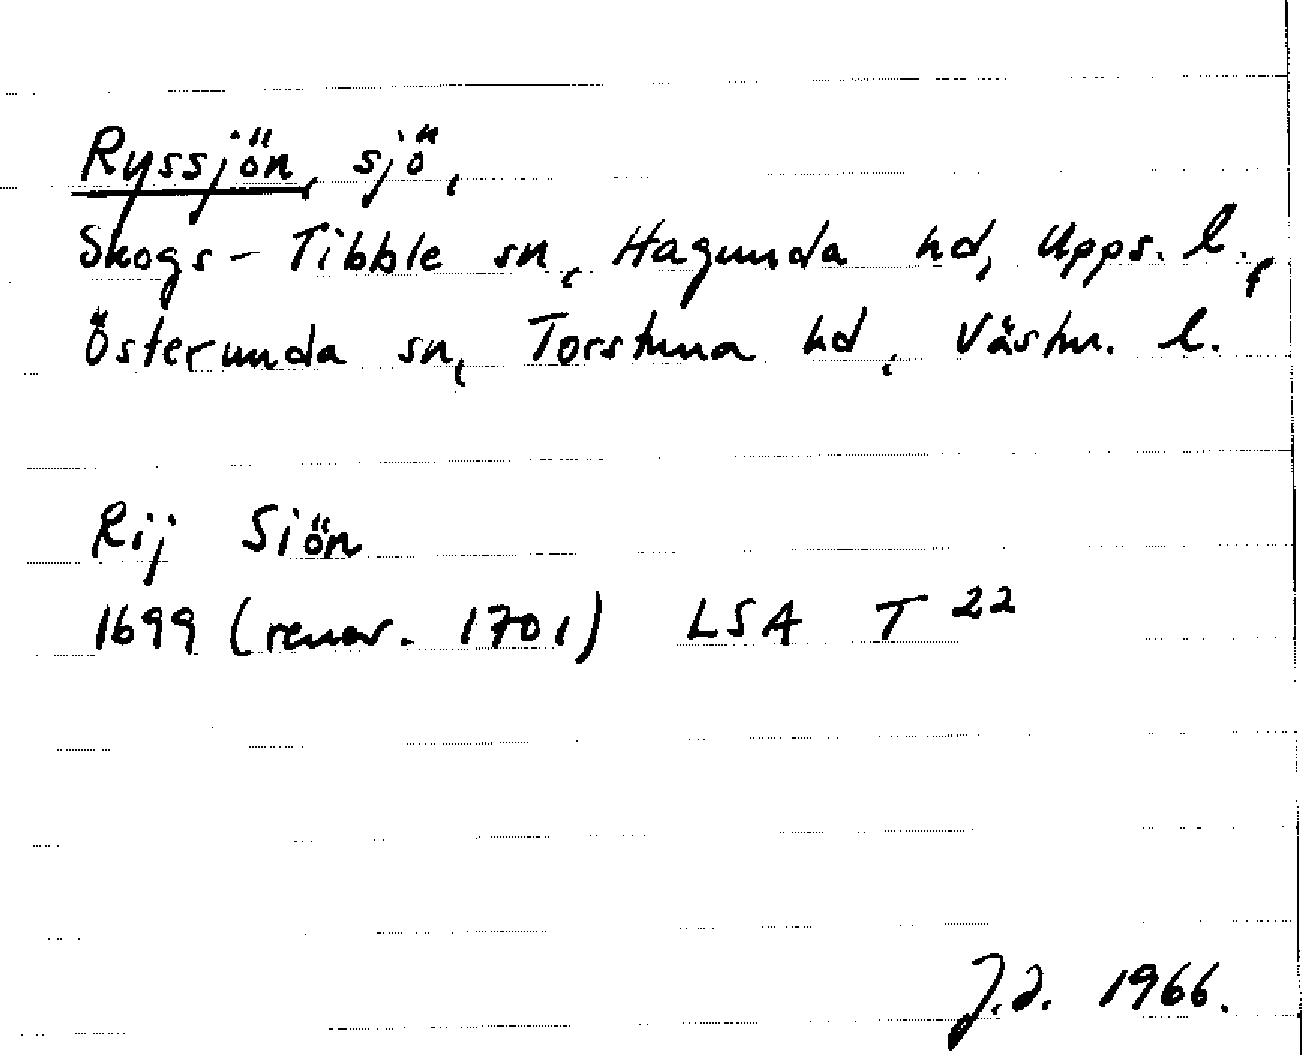 Ryssjön, sjö,
Skogs-Tibble sn, Hagunda hd, Upps. l.,
Österunda sn, Torstuna hd, Västm. l.
Rij Siön
1699 (renov. 1701) LSA T 22
J.J. 1966.